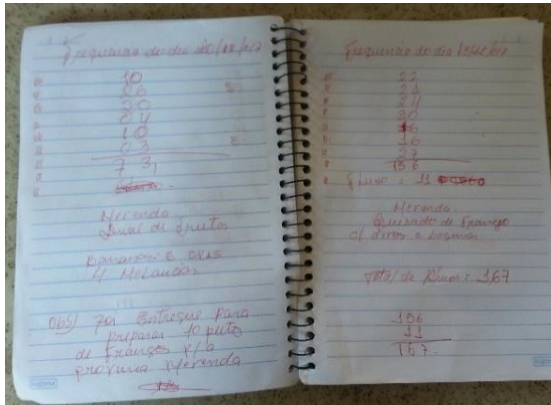 Frequencia do dia
10
26
20
04
10
03
73
Merenda
Sual de frutas
Bananas 8 cxas
4 Melancias
Obs) foi Entregue Para
preparar 10 peito
de Frangos p/a
proxima Merenda
Frequencia do dia
22
21
24
30
16
16
27
156
Fluxo: 11
Merenda
Guizado de Frango
c/ arroz e
Total de Alunos: 167
156
11
167